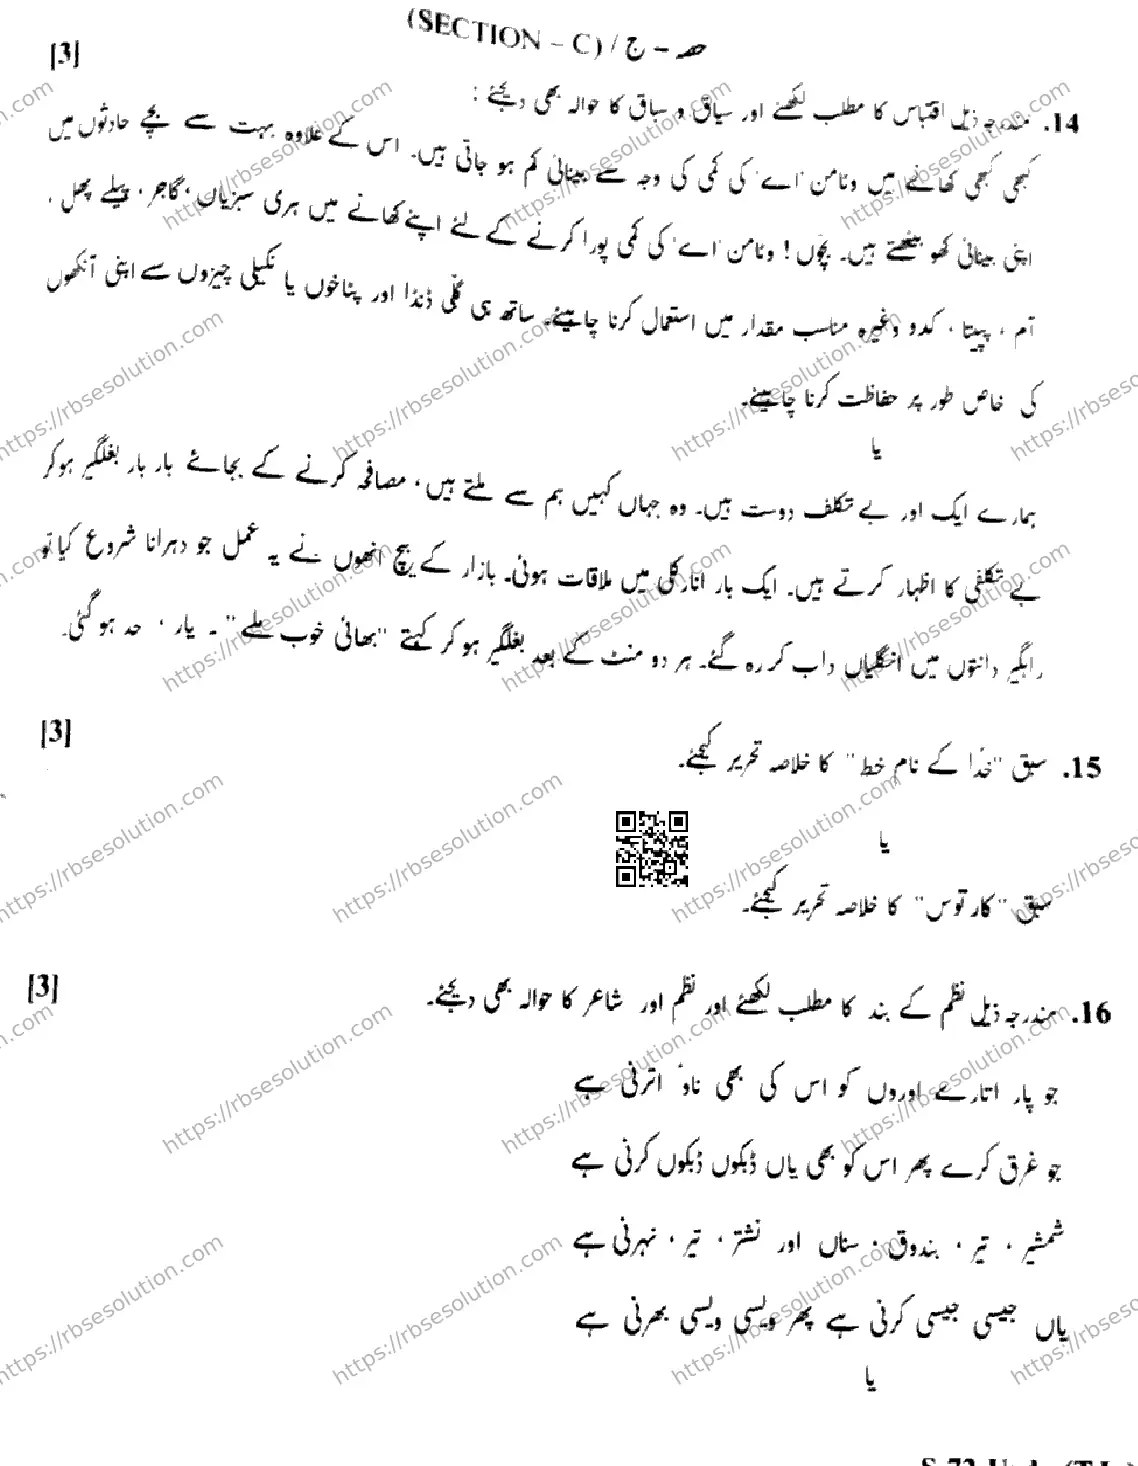 حصہ – ج / (SECTION – C)
[3]
14. مندرجہ ذیل اقتباس کا مطلب لکھئے اور سیاق و سباق کا حوالہ بھی دیجئے :
کبھی کبھی کھانے میں وٹامن 'اے' کی کمی کی وجہ سے بینائی کم ہو جاتی ہیں۔ اس کے علاوہ بہت سے بچے حادثوں میں
اپنی بینائی کھو بیٹھتے ہیں۔ بچّوں! وٹامن 'اے' کی کمی پورا کرنے کے لئے اپنے کھانے میں ہری سبزیاں، گاجر، پیلے پھل،
آم، پپیتا، کدو وغیرہ مناسب مقدار میں استعمال کرنا چاہیئے۔ ساتھ ہی گلّی ڈنڈا اور پٹاخوں یا نکیلی چیزوں سے اپنی آنکھوں
کی خاص طور پر حفاظت کرنا چاہیئے۔
یا
ہمارے ایک اور بے تکلف دوست ہیں۔ وہ جہاں کہیں ہم سے ملتے ہیں، مصافحہ کرنے کے بجائے بار بار بغلگیر ہوکر
بے تکلفی کا اظہار کرتے ہیں۔ ایک بار انارکلی میں ملاقات ہوئی۔ بازار کے بیچ انھوں نے یہ عمل جو دہرانا شروع کیا تو
راہگیر دانتوں میں انگلیاں داب کر رہ گئے۔ ہر دو منٹ کے بعد بغلگیر ہو کر کہتے "بھائی خوب ملے"۔ یار، حد ہوگئی۔
[3]
15. سبق "خدا کے نام خط" کا خلاصہ تحریر کیجئے۔
یا
سبق "کارتوس" کا خلاصہ تحریر کیجئے۔
[3]
16. مندرجہ ذیل نظم کے بند کا مطلب لکھئے اور نظم اور شاعر کا حوالہ بھی دیجئے۔
جو پار اتارے اوروں کو اس کی بھی ناؤ اترنی ہے
جو غرق کرے پھر اس کو بھی یاں ڈبکوں ڈبکوں کرنی ہے
شمشیر، تیر، بندوق، سناں اور نشتر، تیر، نہرنی ہے
یاں جیسی جیسی کرنی ہے پھر ویسی ویسی بھرنی ہے
یا
https://rbsesolution.com